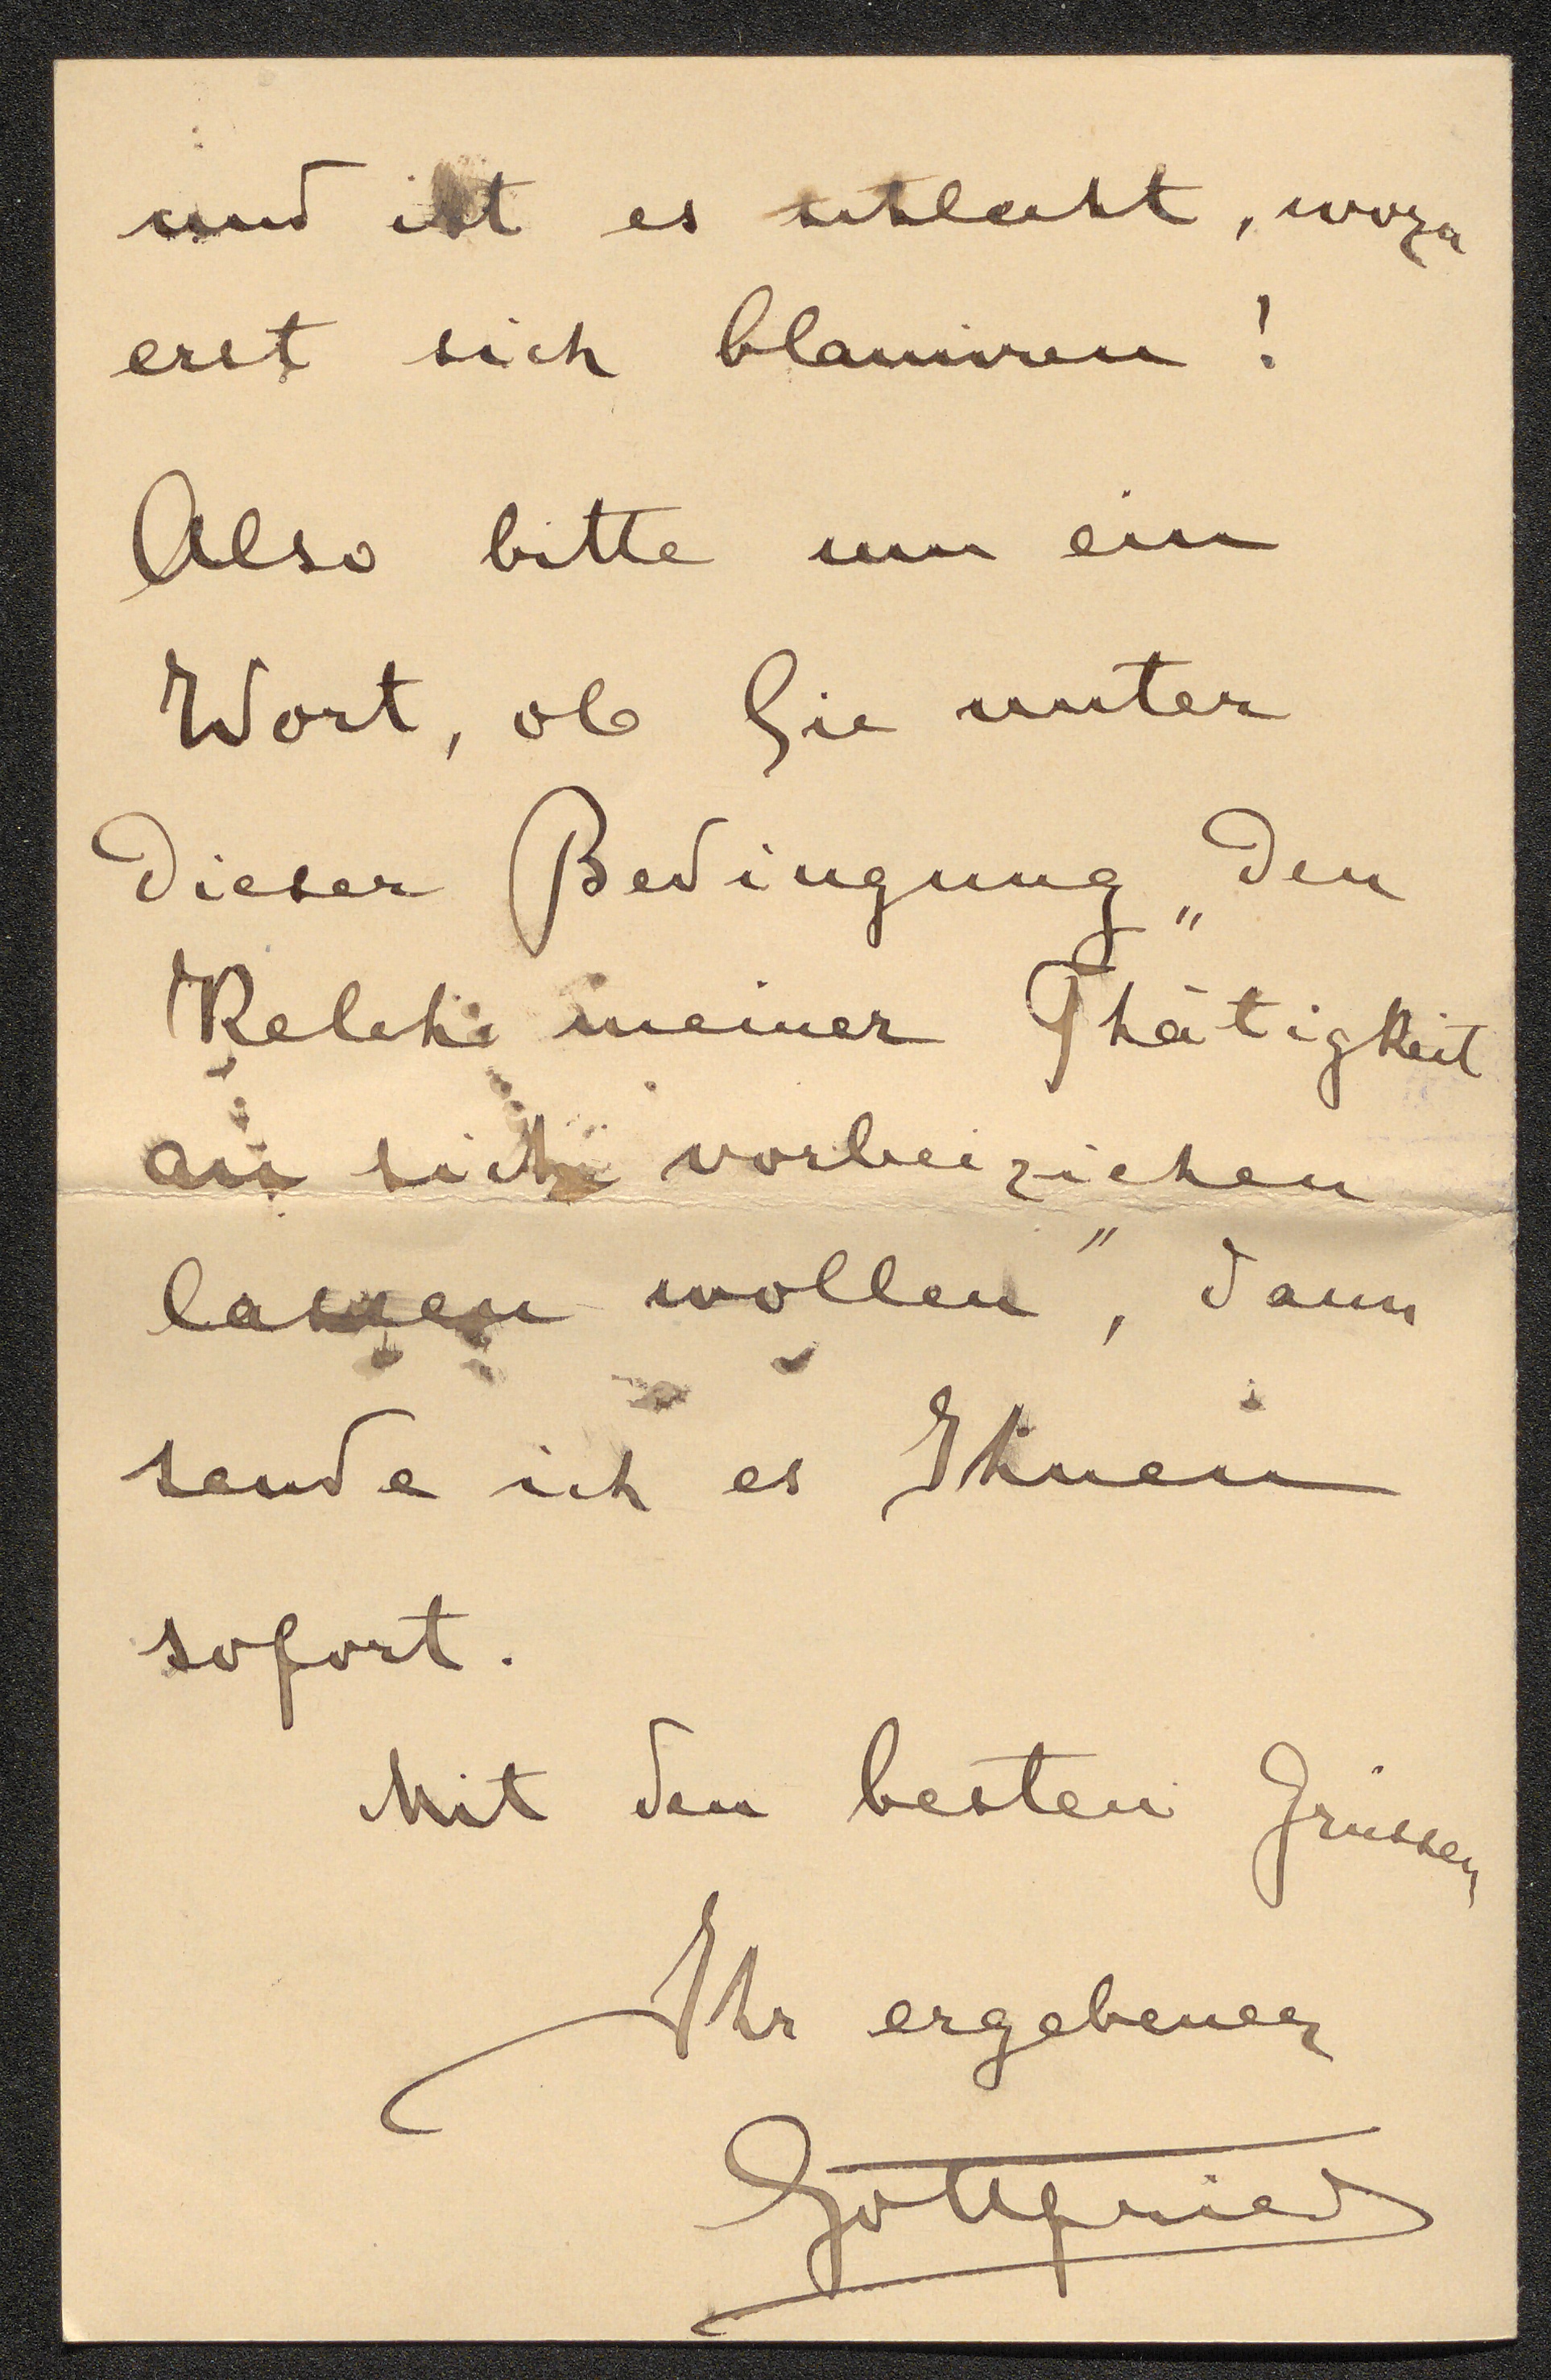 und ist es schlecht, wozu
erst sich blamiren!
Also bitte um ein
Wort, ob Sie unter
dieser Bedingung „den
Kelch meiner Thätigkeit
an sich vorbeiziehen
lassen wollen", dann
sende ich es Ihnen
sofort.
Mit den besten Grüssen
Ihr ergebener
Gottfried